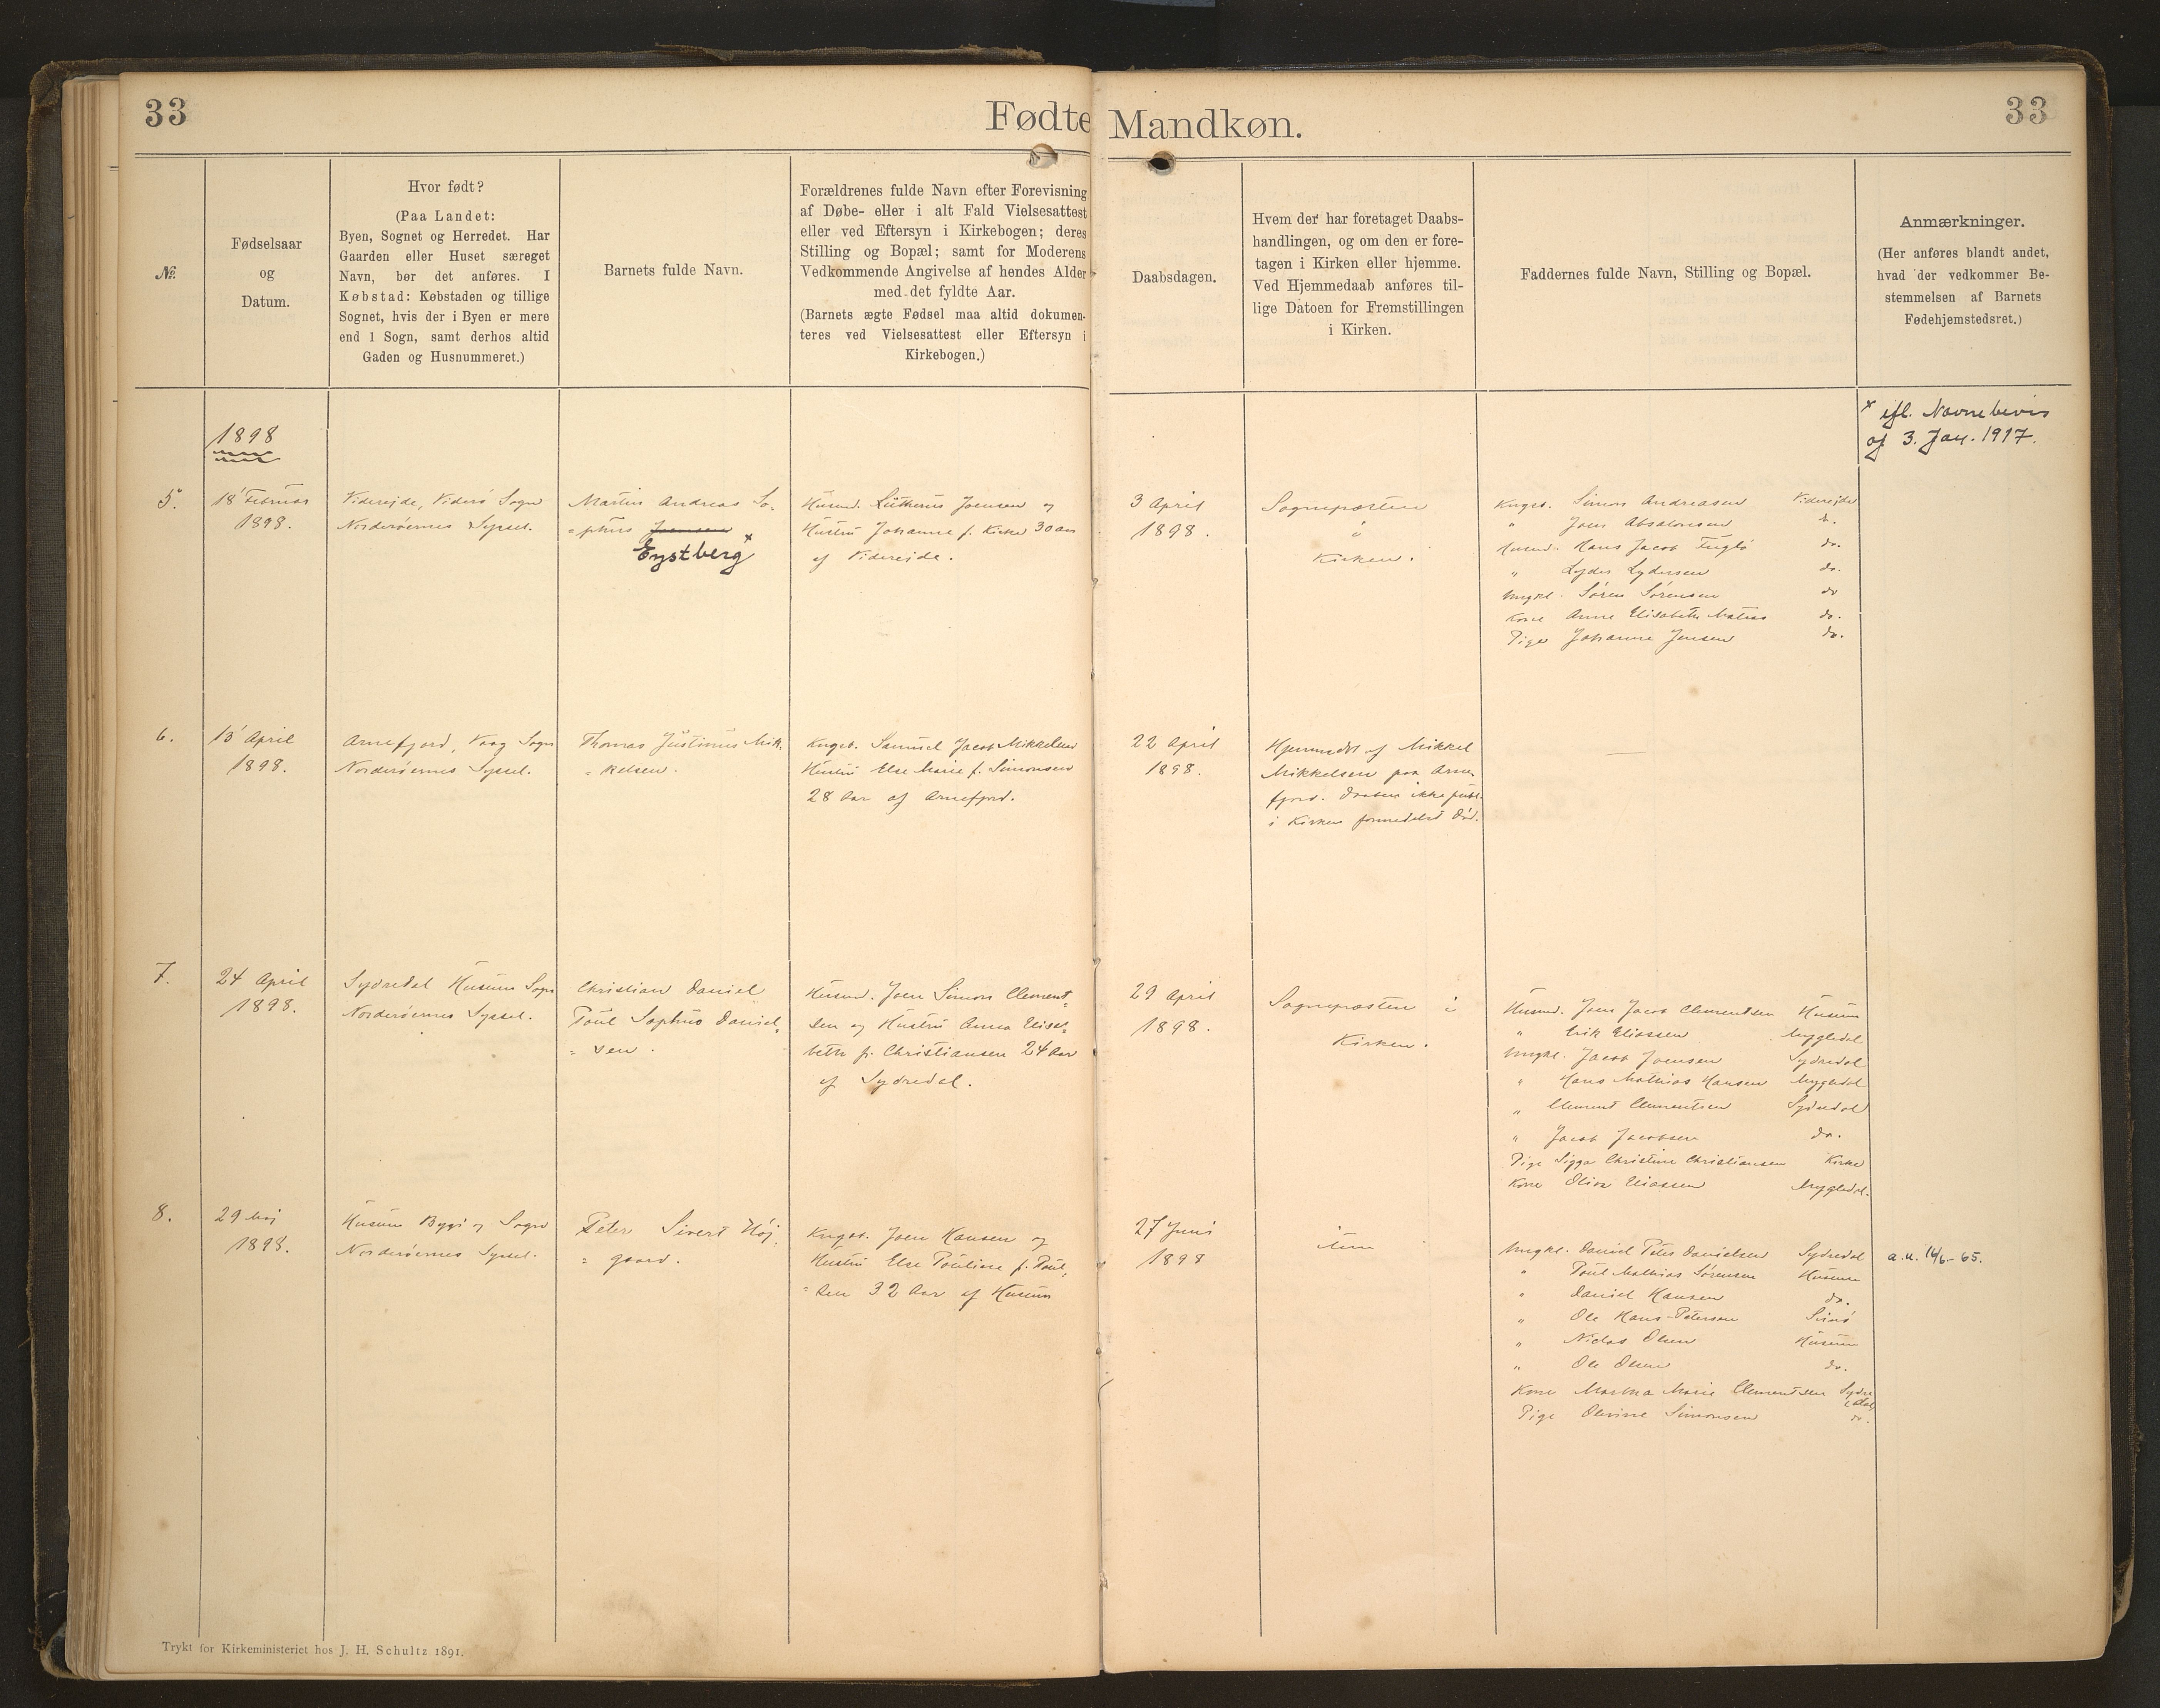 33
Fødte Mandkøn.
33
№
Fødselsaar
og
Datum.
Hvor født?
(Paa Landet:
Byen, Sognet og Herredet. Har
Gaarden eller Huset særeget
Navn, bør det anføres. I
Købstad: Købstaden og tillige
Sognet, hvis der i Byen er mere
end 1 Sogn, samt derhos altid
Gaden og Husnummeret.)
Barnets fulde Navn.
Forældrenes fulde Navn efter Forevisning
af Døbe- eller i alt Fald Vielsesattest
eller ved Eftersyn i Kirkebogen; deres
Stilling og Bopæl; samt for Moderens
Vedkommende Angivelse af hendes Alder
med det fyldte Aar.
(Barnets ægte Fødsel maa altid dokumen-
teres ved Vielsesattest eller Eftersyn i
Kirkebogen.)
Daabsdagen.
Hvem der har foretaget Daabs-
handlingen, og om den er fore-
tagen i Kirken eller hjemme.
Ved Hjemmedaab anføres til-
lige Datoen for Fremstillingen
i Kirken.
Faddernes fulde Navn, Stilling og Bopæl.
Anmærkninger.
(Her anføres blandt andet,
hvad der vedkommer Be-
stemmelsen af Barnets
Fødehjemstedsret.)
1898
x ifl. Navnebevis
af 3. Jan. 1917.
5.
18 Februar
1898.
Viderejde, Viderø Sogn
Norderøernes Syssel.
Martin Andreas So-
=phus Joensen
Eystberg x
Husmd. Lutherus Joensen og
Hustru Johanne f. Kirke 30 aar
af Viderejde.
3 April
1898.
Sognepræsten
"
Kirken.
Kngsb. Simon Andreasen Viderejde
" Joen Absalonsen do.
Husmd. Hans Jacob Fuglø do.
" Lyder Lydersen do.
Ungkl. Søren Sørensen do
Kone Anne Elisabeth Matras do.
Pige Johanne Jensen do.
6.
13 April
1898.
Arnefjord, Vaag Sogn
Norderøernes Syssel.
Thomas Justinus Mik-
=kelsen.
Kngsb. Samuel Jacob Mikkelsen
Hustru Else Marie f. Simonsen
28 Aar af Arnefjord.
22 April
1898.
Hjemmedøbt af Mikkel
Mikkelsen paa Arne-
fjord. Daaben ikke publ.
i Kirken formedelst Død.
—
7.
24 April
1898.
Sydredal Husum Sogn
Norderøernes Syssel.
Christian Daniel
Poul Sophus Daniel-
=sen.
Husmd. Joen Simon Clement-
sen og Hustru Anna Elisa-
beth f. Christiansen 24 Aar
af Sydredal.
29 April
1898.
Sognepræsten i
Kirken.
Husmd. Joen Jacob Clementsen Husum
" Erik Eliassen Mygledal
Ungkl. Jacob Joensen Sydredal
" Hans Mathias Hansen Mygledal
" Clement Clementsen Sydredal
" Jacob Jacobsen do.
Pige Sigga Christine Christiansen Kirke
Kone Oliva Eliassen Mygledal.
8.
29 Maj
1898.
Husum Bygd og Sogn
Norderøernes Syssel.
Peter Sivert Høj-
=gaard.
Kngsb. Joen Hansen og
Hustru Else Pouline f. Poul-
=sen 32 Aar af Husum
27 Juni
1898
item
Ungkl. Daniel Peter Danielsen Sydredal
" Poul Mathias Sørensen Husum
" Daniel Hansen do.
" Ole Hans-Petersen
" Niclas Olsen Husum
" Ole Olsen do.
Kone Martha Marie Clementsen Sydre
dal
Pige Olevine Simonsen do.
a.u. 16/6-65.
Trykt for Kirkeministeriet hos J. H. Schultz 1891.